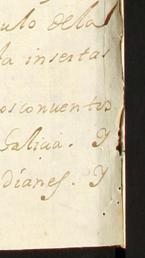 culo de la
ta insertas
os conventos
Galicia. Y
dianes. Y